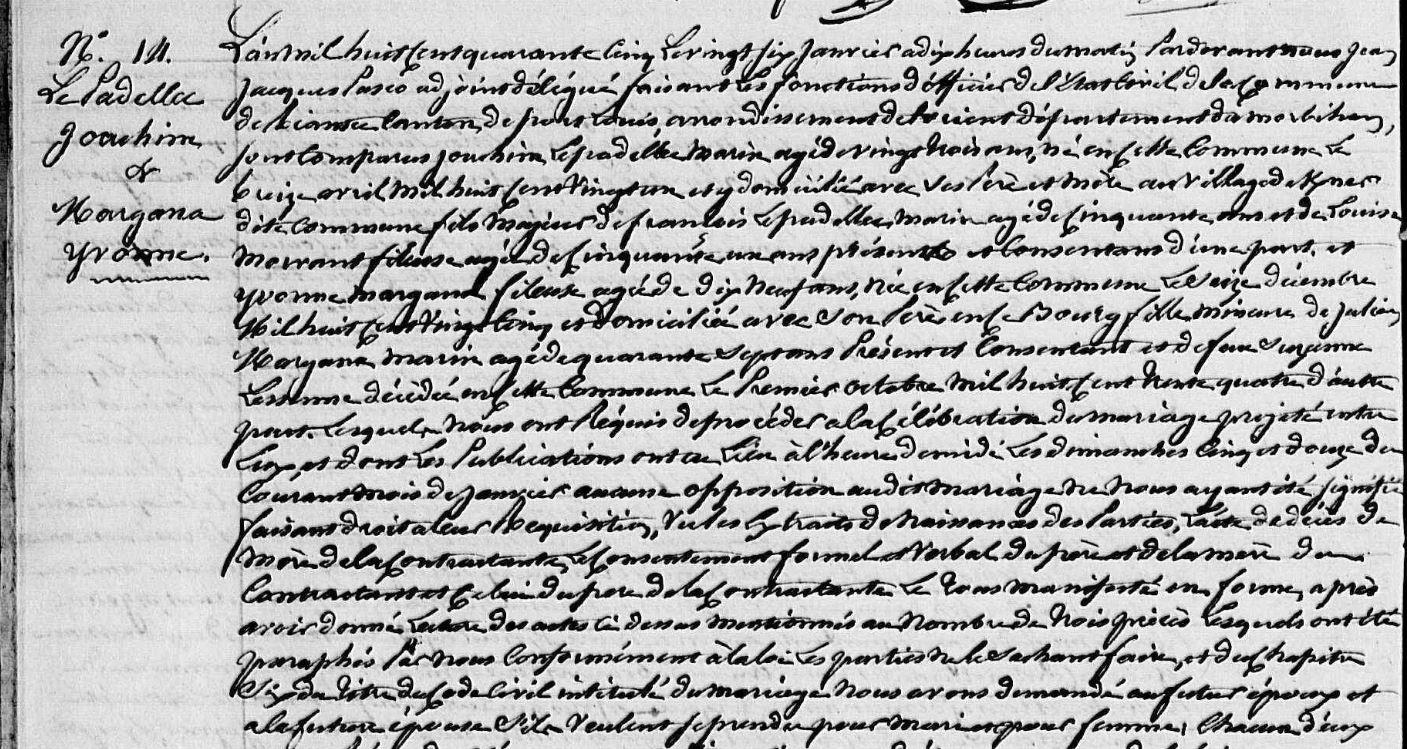 N° 14.
Le Padellec
Joachim
&
Morgana
Yvonne.
L'an mil huit cent quarante cinq le vingt six janvier a dix heures du matin Pardevant nous Jean
Jacques Pasco adjoint délégué faisant les fonctions d'officier de l'Etat Civil de la Commune
de Riantec Canton de port Louis, arrondissement de Lorient département du morbihan,
sont Comparus joachim Le padellec marin agé de vingt trois ans, né en cette Commune le
treize avril mil huit cent vingt un et y domicilié avec ses Père et Mère au village de
dite Commune fils Majeur de françois Le padellec marin agé de cinquante ans et de Louise
Morvant fileuse agée de cinquante un ans présents et Consentans d'une part. et
yvonne margana fileuse agée de dix neuf ans, née en cette Commune le seize décembre
Mil huit cent vingt cinq et domiciliée avec son Père en ce Bourg fille mineure de julien
Morgana marin agé de quarante sept ans Présent et Consentant et de feue
décédée en cette Commune le Premier octobre Mil huit cent trente quatre d'autre
part. Lesquels Nous ont Réquis de procéder a la Célébration du mariage projeté entre
Eux, et dont les Publications ont eu Lieu à l'heure de midi les dimanches Cinq et douze du
Courant mois de janvier aucune opposition audit Mariage ne Nous ayant été signifié
faisant droit a leur Requisition, Vu les Extraits de Naissances des Parties, l'acte de décès de
Mère de la Contractante, le Consentement formel et Verbal du père et de la mère du
Contractant et Celui du père de la Contractante Le tous manifesté en forme, après
avoir donné Lecture des actes ci dessus mentionnés au Nombre de trois pièces Lesquels ont été
paraphés Par nous Conformément à la loi les parties ne le sachant faire, et du Chapitre
Six du titre du Code Civil intitulé du mariage Nous avons demandé au futur époux et
a la future épouse s'ils veulent se prendre pour Mari et pour femme, Chacun d'eux